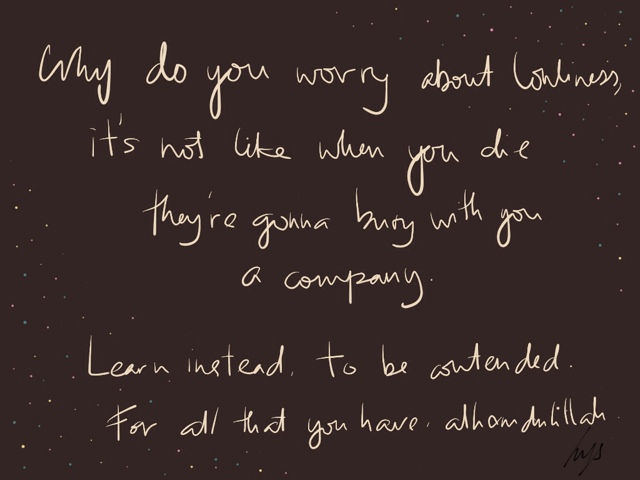 Why do you worry about lonliness,
it's not like when you die
they're gonna bury with you
a company.
Learn instead. to be contended.
For all that you have. alhamdulillah